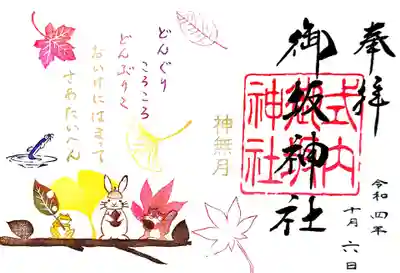 奉拝
令和四年
十月六日
御坂神社
式内
神社
神無月
どんぐり
ころころ
どんぶりこ
おいけにはまって
さあたいへん